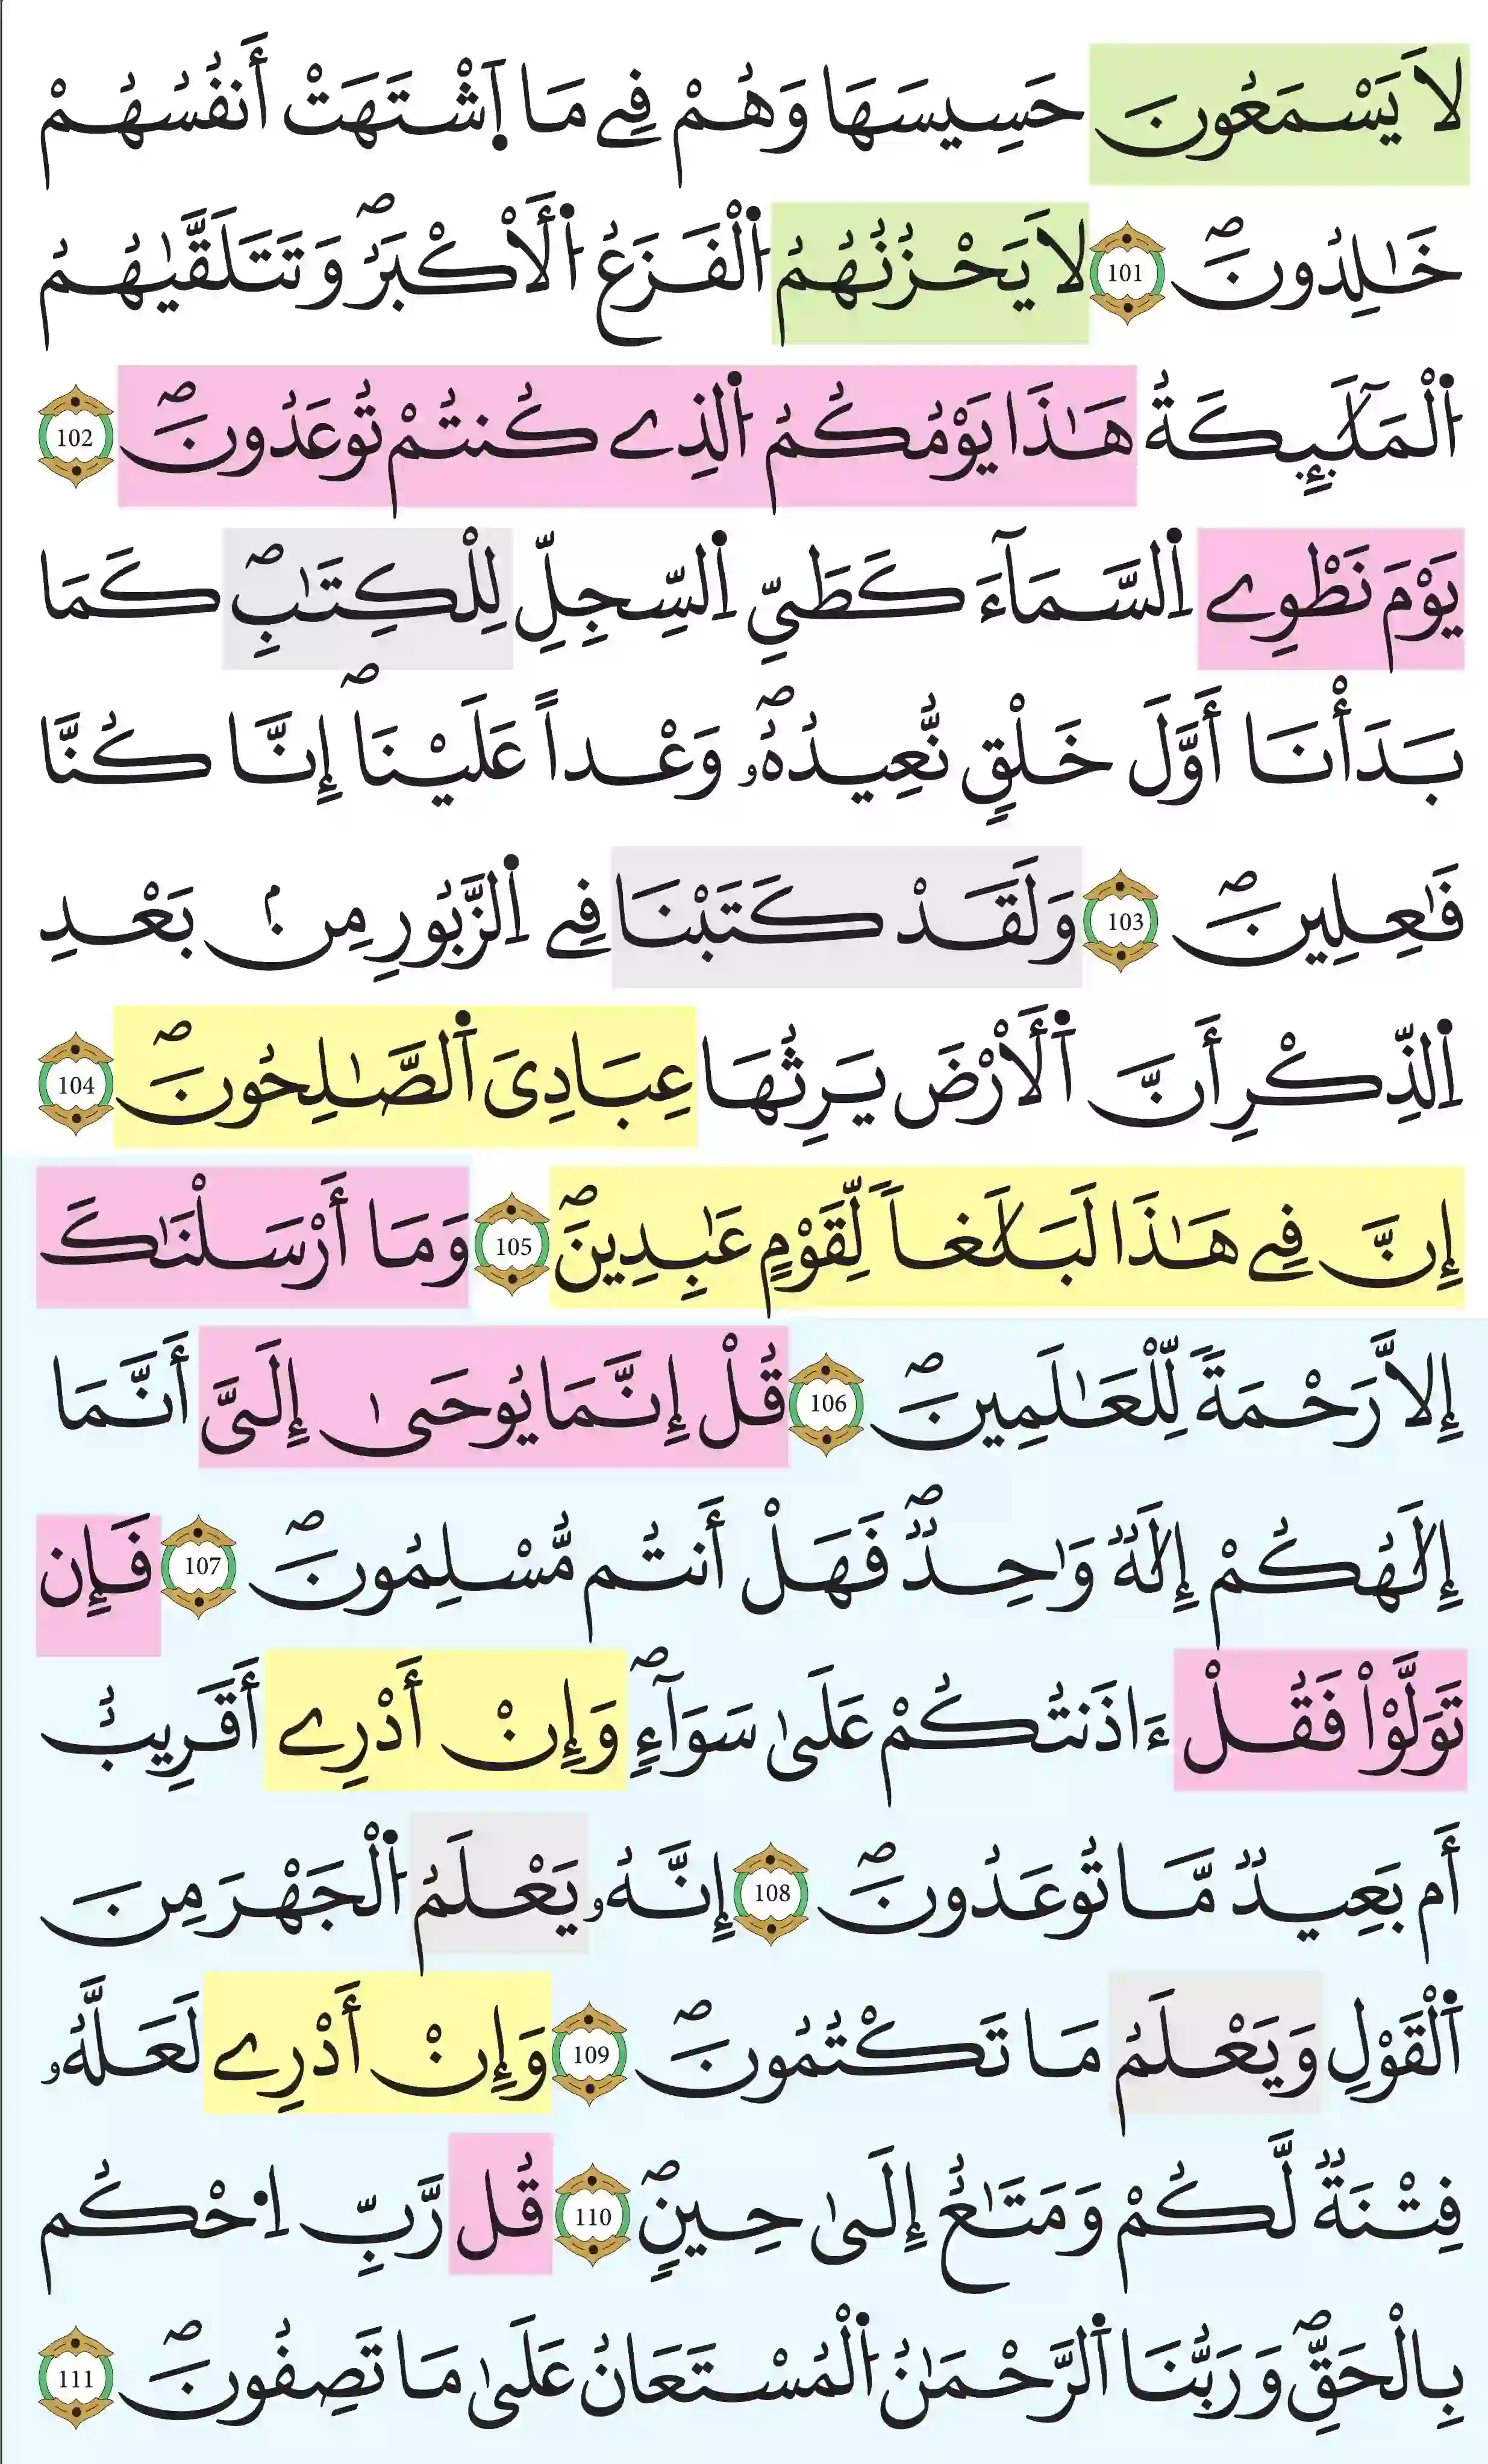 لَا يَسْمَعُونَ حَسِيسَهَا وَهُمْ فِے مَا اَ۪شْتَهَتْ أَنفُسُهُمْ
خَٰلِدُونَۖ 101 لَا يَحْزُنُهُمُ اُ۬لْفَزَعُ اُ۬لَاكْبَرُۖ وَتَتَلَقَّيٰهُمُ
اُ۬لْمَلَٰٓئِكَةُ هَٰذَا يَوْمُكُمُ اُ۬لذِے كُنتُمْ تُوعَدُونَۖ 102
يَوْمَ نَطْوِے اِ۬لسَّمَآءَ كَطَيِّ اِ۬لسِّجِلِّ لِلْكِتَٰبِۖ كَمَا
بَدَأْنَا أَوَّلَ خَلْقٍ نُّعِيدُهُۥۖ وَعْداً عَلَيْنَاۖ إِنَّا كُنَّا
فَٰعِلِينَۖ 103 وَلَقَدْ كَتَبْنَا فِے اِ۬لزَّبُورِ مِنۢ بَعْدِ
اِ۬لذِّكْرِ أَنَّ اَ۬لَارْضَ يَرِثُهَا عِبَادِىَ اَ۬لصَّٰلِحُونَۖ 104
إِنَّ فِے هَٰذَا لَبَلَٰغاً لِّقَوْمٍ عَٰبِدِينَۖ 105 وَمَا أَرْسَلْنَٰكَ
إِلَّا رَحْمَةً لِّلْعَٰلَمِينَۖ 106 قُلْ إِنَّمَا يُوحَىٰ إِلَىَّ أَنَّمَا
إِلَٰهُكُمْ إِلَٰهٌ وَٰحِدٌۖ فَهَلْ أَنتُم مُّسْلِمُونَۖ 107 فَإِن
تَوَلَّوْاْ فَقُلْ ءَاذَنتُكُمْ عَلَىٰ سَوَآءٍۖ وَإِنْ أَدْرِے أَقَرِيبٌ
أَم بَعِيدٌ مَّا تُوعَدُونَۖ 108 إِنَّهُۥ يَعْلَمُ اُ۬لْجَهْرَ مِنَ
اَ۬لْقَوْلِ وَيَعْلَمُ مَا تَكْتُمُونَۖ 109 وَإِنْ أَدْرِے لَعَلَّهُۥ
فِتْنَةٌ لَّكُمْ وَمَتَٰعٌ إِلَىٰ حِينٍۖ 110 قُل رَّبِّ اِ۟حْكُم
بِالْحَقِّۖ وَرَبُّنَا اَ۬لرَّحْمَٰنُ اُ۬لْمُسْتَعَانُ عَلَىٰ مَا تَصِفُونَۖ 111